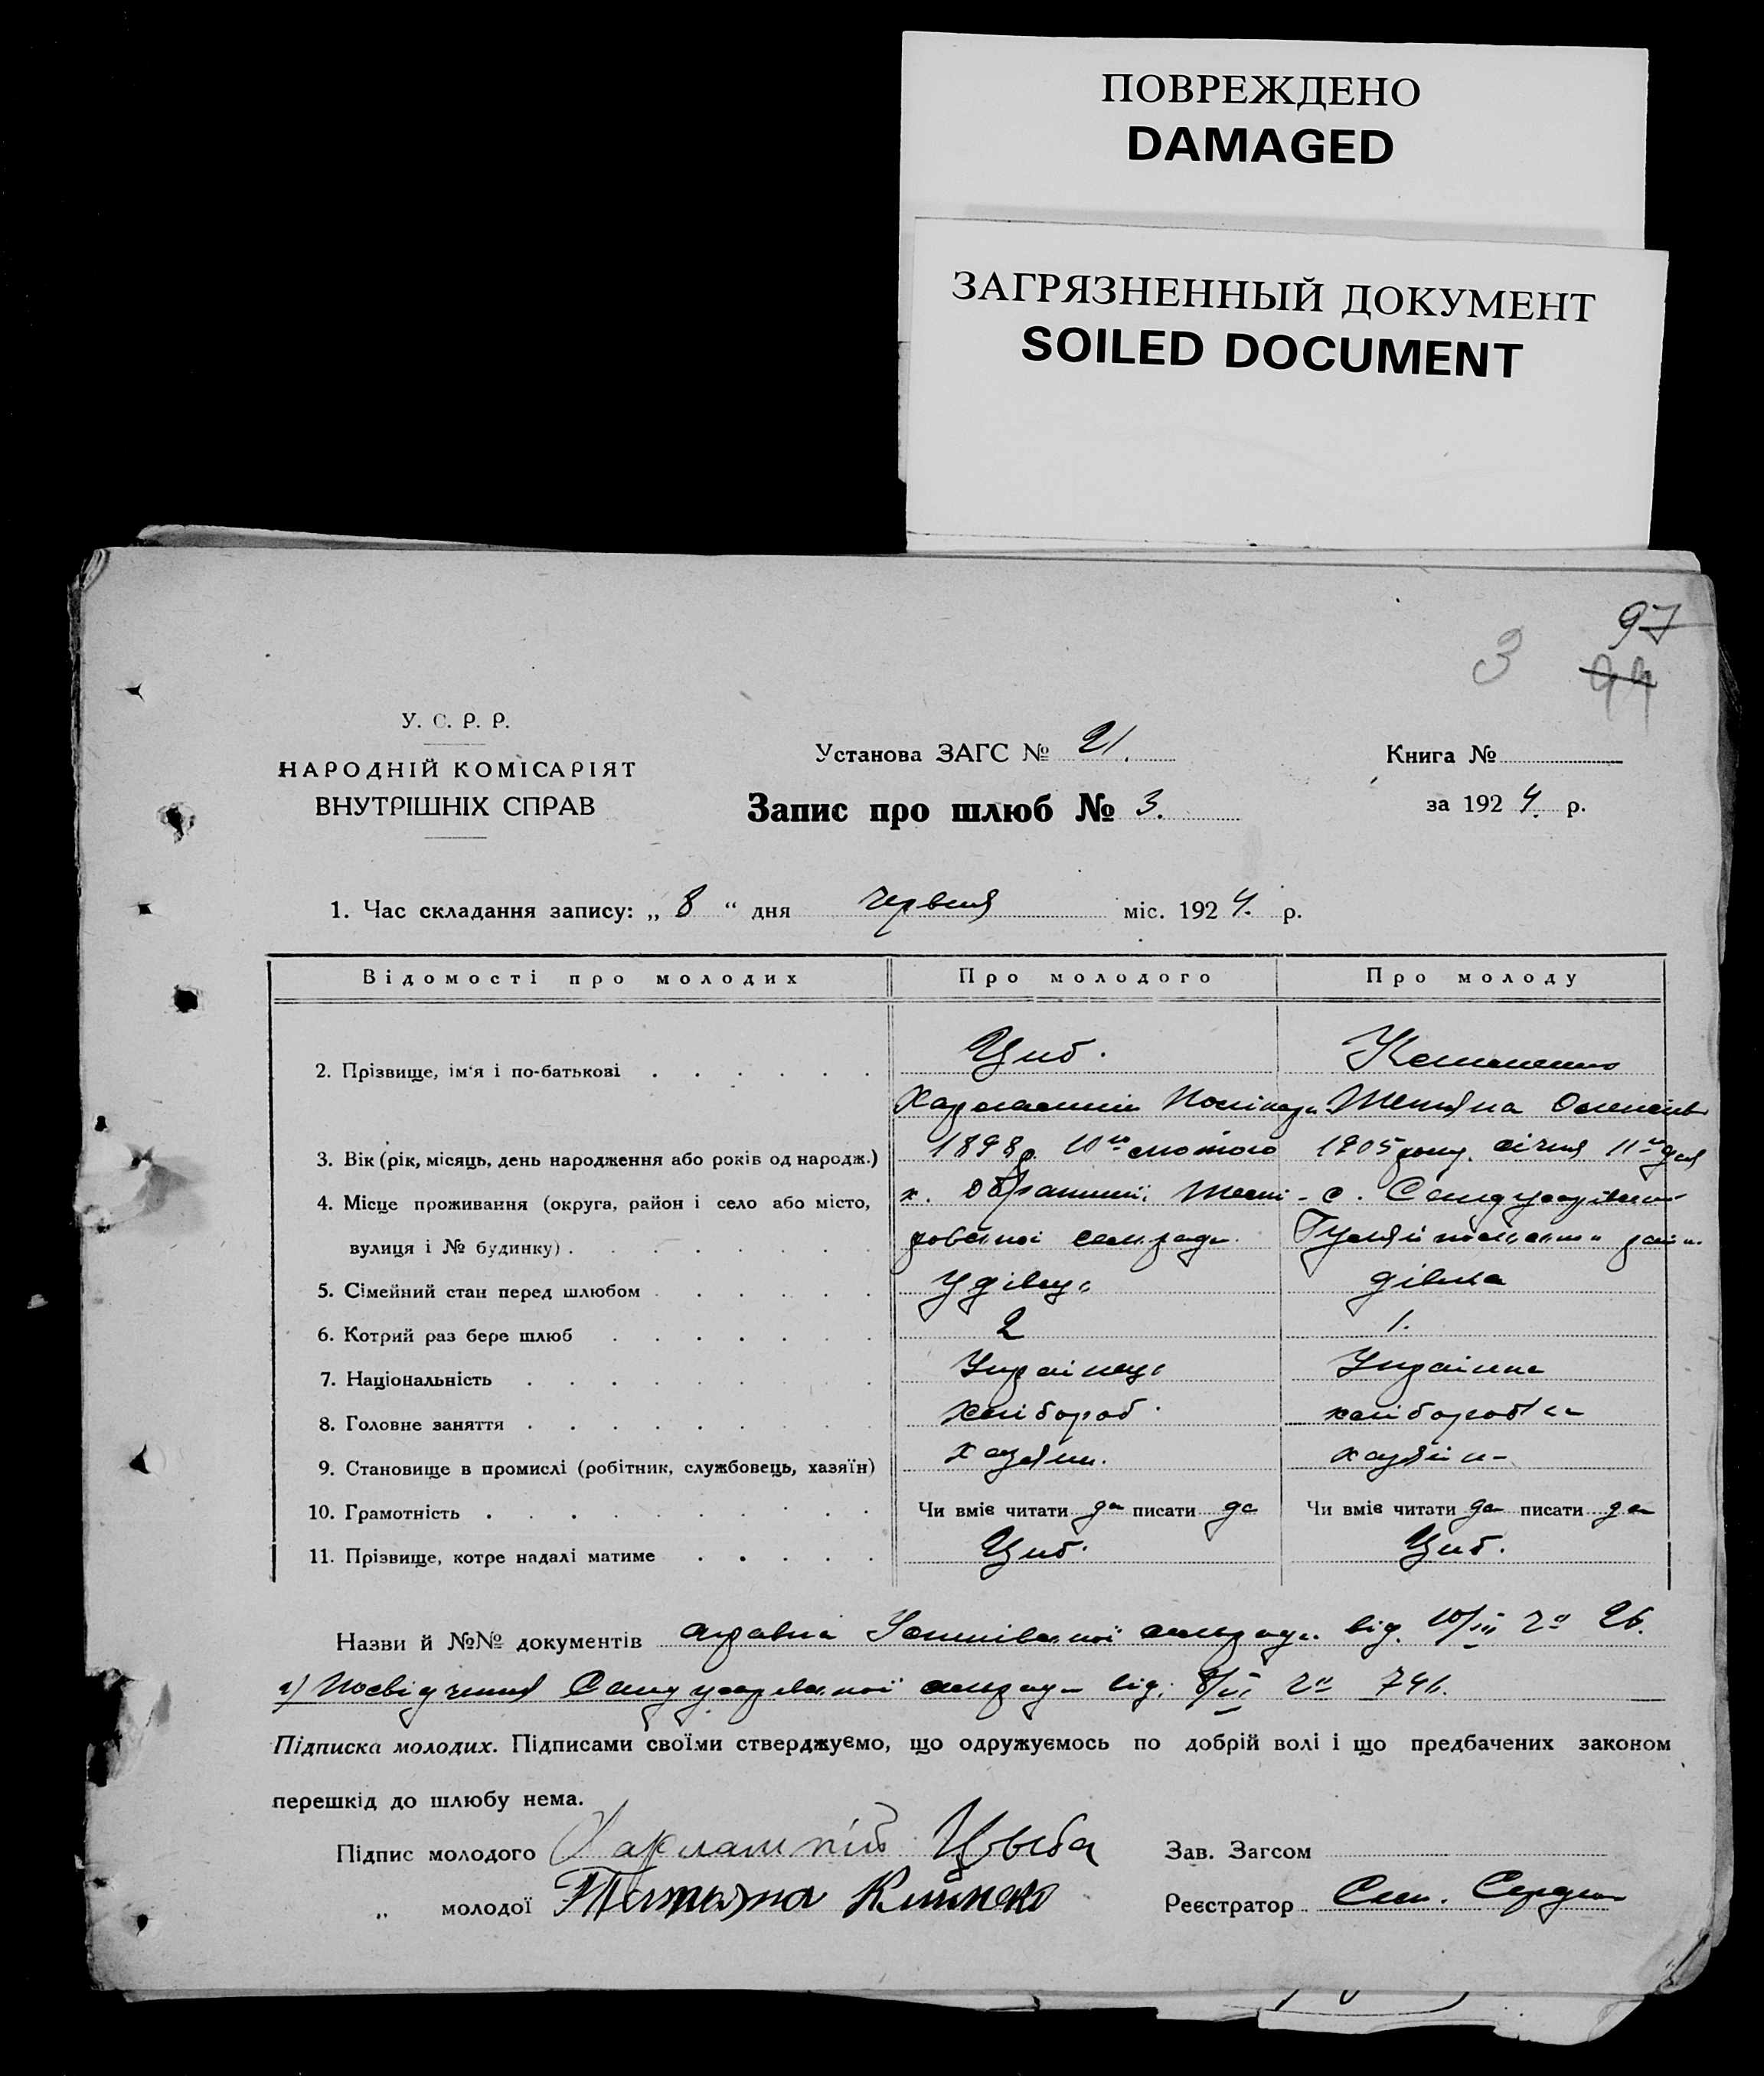 ПОВРЕЖДЕНО
DAMAGED
ЗАГРЯЗНЕННЫЙ ДОКУМЕНТ
SOILED DOCUMENT
97
3 94
У. С. Р. Р.
НАРОДНІЙ КОМІСАРІЯТ
ВНУТРІШНІХ СПРАВ
Установа ЗАГС № 21.
Запис про шлюб № 3.
Книга №
за 192 4. р.
1. Час складання запису: „ 8 “ дня червня міс. 192 4. р.
Відомості про молодих Про молодого Про молоду
2. Прізвище, ім'я і по-батькові Циб.
Харлампій Тетяна
3. Вік (рік, місяць, день народження або років од народж.) 1898 р. 10го лютого 1905 року січня 11го дня
4. Місце проживання (округа, район і село або місто, х. с.
вулиця і № будинку) сельради. Гуляйпольськ. райн.
5. Сімейний стан перед шлюбом Удівець дівка
6. Котрий раз бере шлюб 2 1.
7. Національність Українець Українка
8. Головне заняття хлібороб. хліборобка
9. Становище в промислі (робітник, службовець, хазяїн) хазяїн. хазяїн
10. Грамотність Чи вміє читати да писати да Чи вміє читати да писати да
11. Прізвище, котре надалі матиме Циб. Циб.
Назви й №№ документів справка сельради від 10/III № 26.
2) Посвідчення сельради від 8/VI № 746.
Підписка молодих. Підписами своїми стверджуємо, що одружуємось по добрій волі і що предбачених законом
перешкід до шлюбу нема.
Підпис молодого Харлампій Цыба Зав. Загсом
„ молодої Татьяна Реєстратор